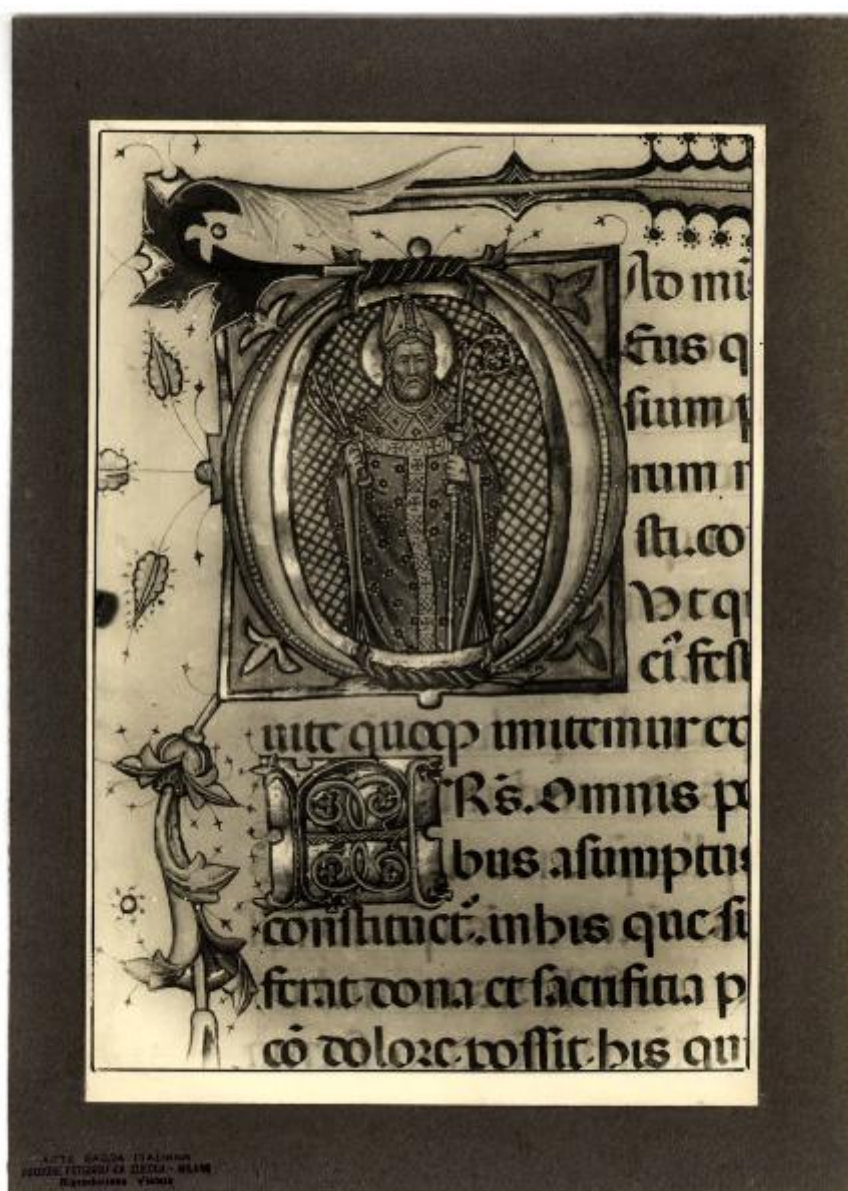 Ad mi
Eus q
sium p
rum n
sti. co
Vt qu
ci fest
uite quoqꝫ imitemur co
FRs. Omnis po
bus asumptus
constituet̄. in his que su
ferat dona et sacrificia p
cō dolore. possit. his qui
ARTE SACRA ITALIANA
MILANO
Riproduzione Vietata